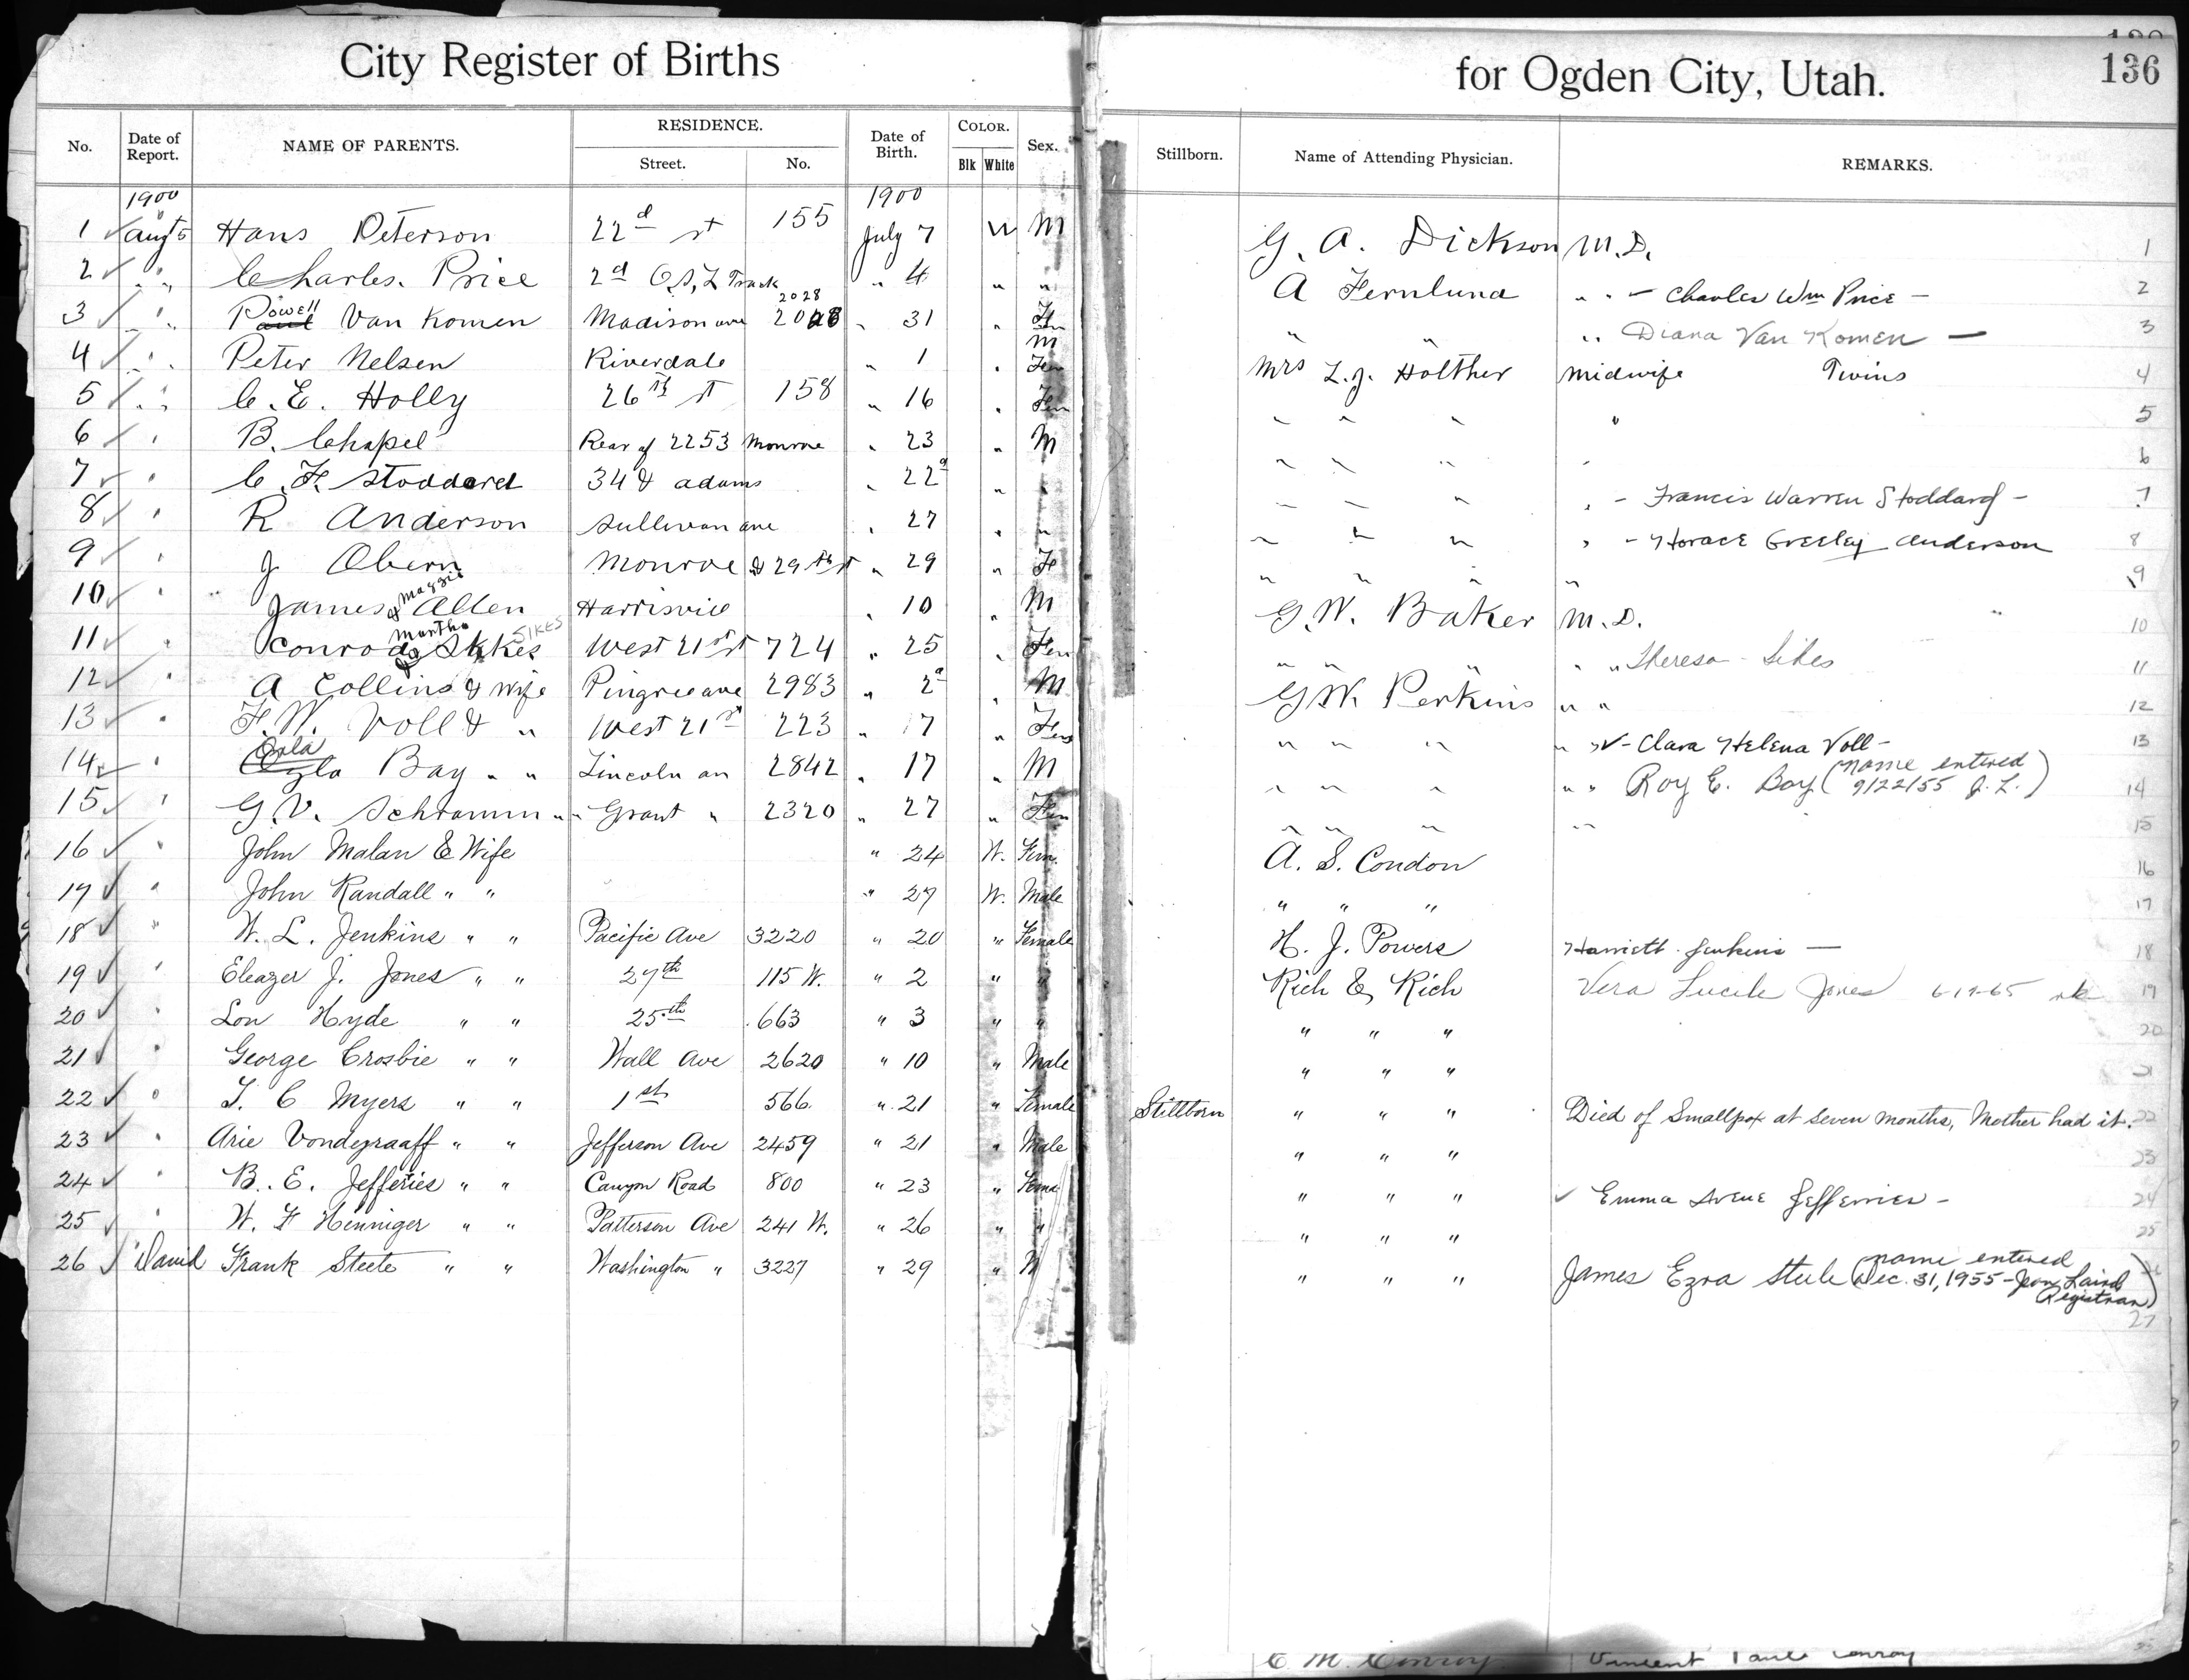 City Register of Births for Ogden City, Utah. 136
No. Date of Report. NAME OF PARENTS. RESIDENCE. Street. No. Date of Birth. COLOR. Blk White Sex. Stillborn. Name of Attending Physician. REMARKS.
1900 1900
1 Aug 5 Hans Peterson 22d st 155 July 7 W M G. A. Dickson M.D. 1
2 " " Charles. Price 2d O,S,L Track " 4 " " A Fernlund " " - Charles Wm Price - 2
3 " " Powell Van Komen Madison ave 2028 2028 " 31 " Fem " " " " Diana Van Komen - 3
4 " " Peter Nelsen Riverdale " 1 " M Fem Mrs L.J. Holther midwife Twins 4
5 " " C. E. Holly 26th st 158 " 16 " Fem " " " " 5
6 " B. Chapel Rear of 2253 Monroe " 23 " M " " " " 6
7 " C. F. Stoddard 34 & adams " 22d " " " " " " - Francis Warren Stoddard - 7
8 " R Anderson Sullivan ave " 27 " " " " " " - Horace Greeley Anderson 8
9 " J Obern Monroe & 29th st " 29 " F " " " " 9
10 " James & Maggie Allen Harrisvill " 10 " M G.W. Baker M.D. 10
11 " Conrod & Martha Sykes SIKES West 21st st 724 " 25 " Fem " " " " " Theresa - Sikes 11
12 " A Collins & wife Pingree ave 2983 " 2d " M G W. Perkins " " 12
13 " F. W. Voll & " West 21st 223 " 17 " Fem " " " " " - Clara Helena Voll - 13
14 " Orla Bay " " Lincoln av 2842 " 17 " M " " " " " Roy E. Bay (name entered 9/22/55 J. L.) 14
15 " G. V. Schramm " " Grant " 2320 " 27 " Fem " " " " 15
16 " John Malan & Wife " 24 W. Fem. A. S. Condon 16
17 " John Randall " " " 27 W. Male " " " 17
18 " W. L. Jenkins " " Pacific Ave 3220 " 20 " Female H. J. Powers Harriett Jenkins - 18
19 " Eleazer J. Jones " " 27th 115 W. " 2 " " Rich & Rich Vera Lucile Jones 6-19-65 19
20 " Lon Hyde " " 25th 663 " 3 " " " " " 20
21 " George Crosbie " " Wall Ave 2620 " 10 " Male " " " 21
22 " T. C Myers " " 1st 566. " 21 " Female Stillborn " " " Died of Smallpox at seven months, Mother had it. 22
23 " Arie Vondegraaff " " Jefferson Ave 2459 " 21 " Male " " " 23
24 " B. E. Jefferies " " Canyon Road 800 " 23 " Fema " " " Emma Jefferries - 24
25 " W. F Henniger " " Patterson Ave 241 W. " 26 " " " " " 25
26 " David Frank Steele " " Washington " 3227 " 29 " M " " " James Ezra Steele (name entered Dec. 31, 1955 - Jean Laird Registrar) 26
27
C. M. Conroy Vincent Paul Conroy